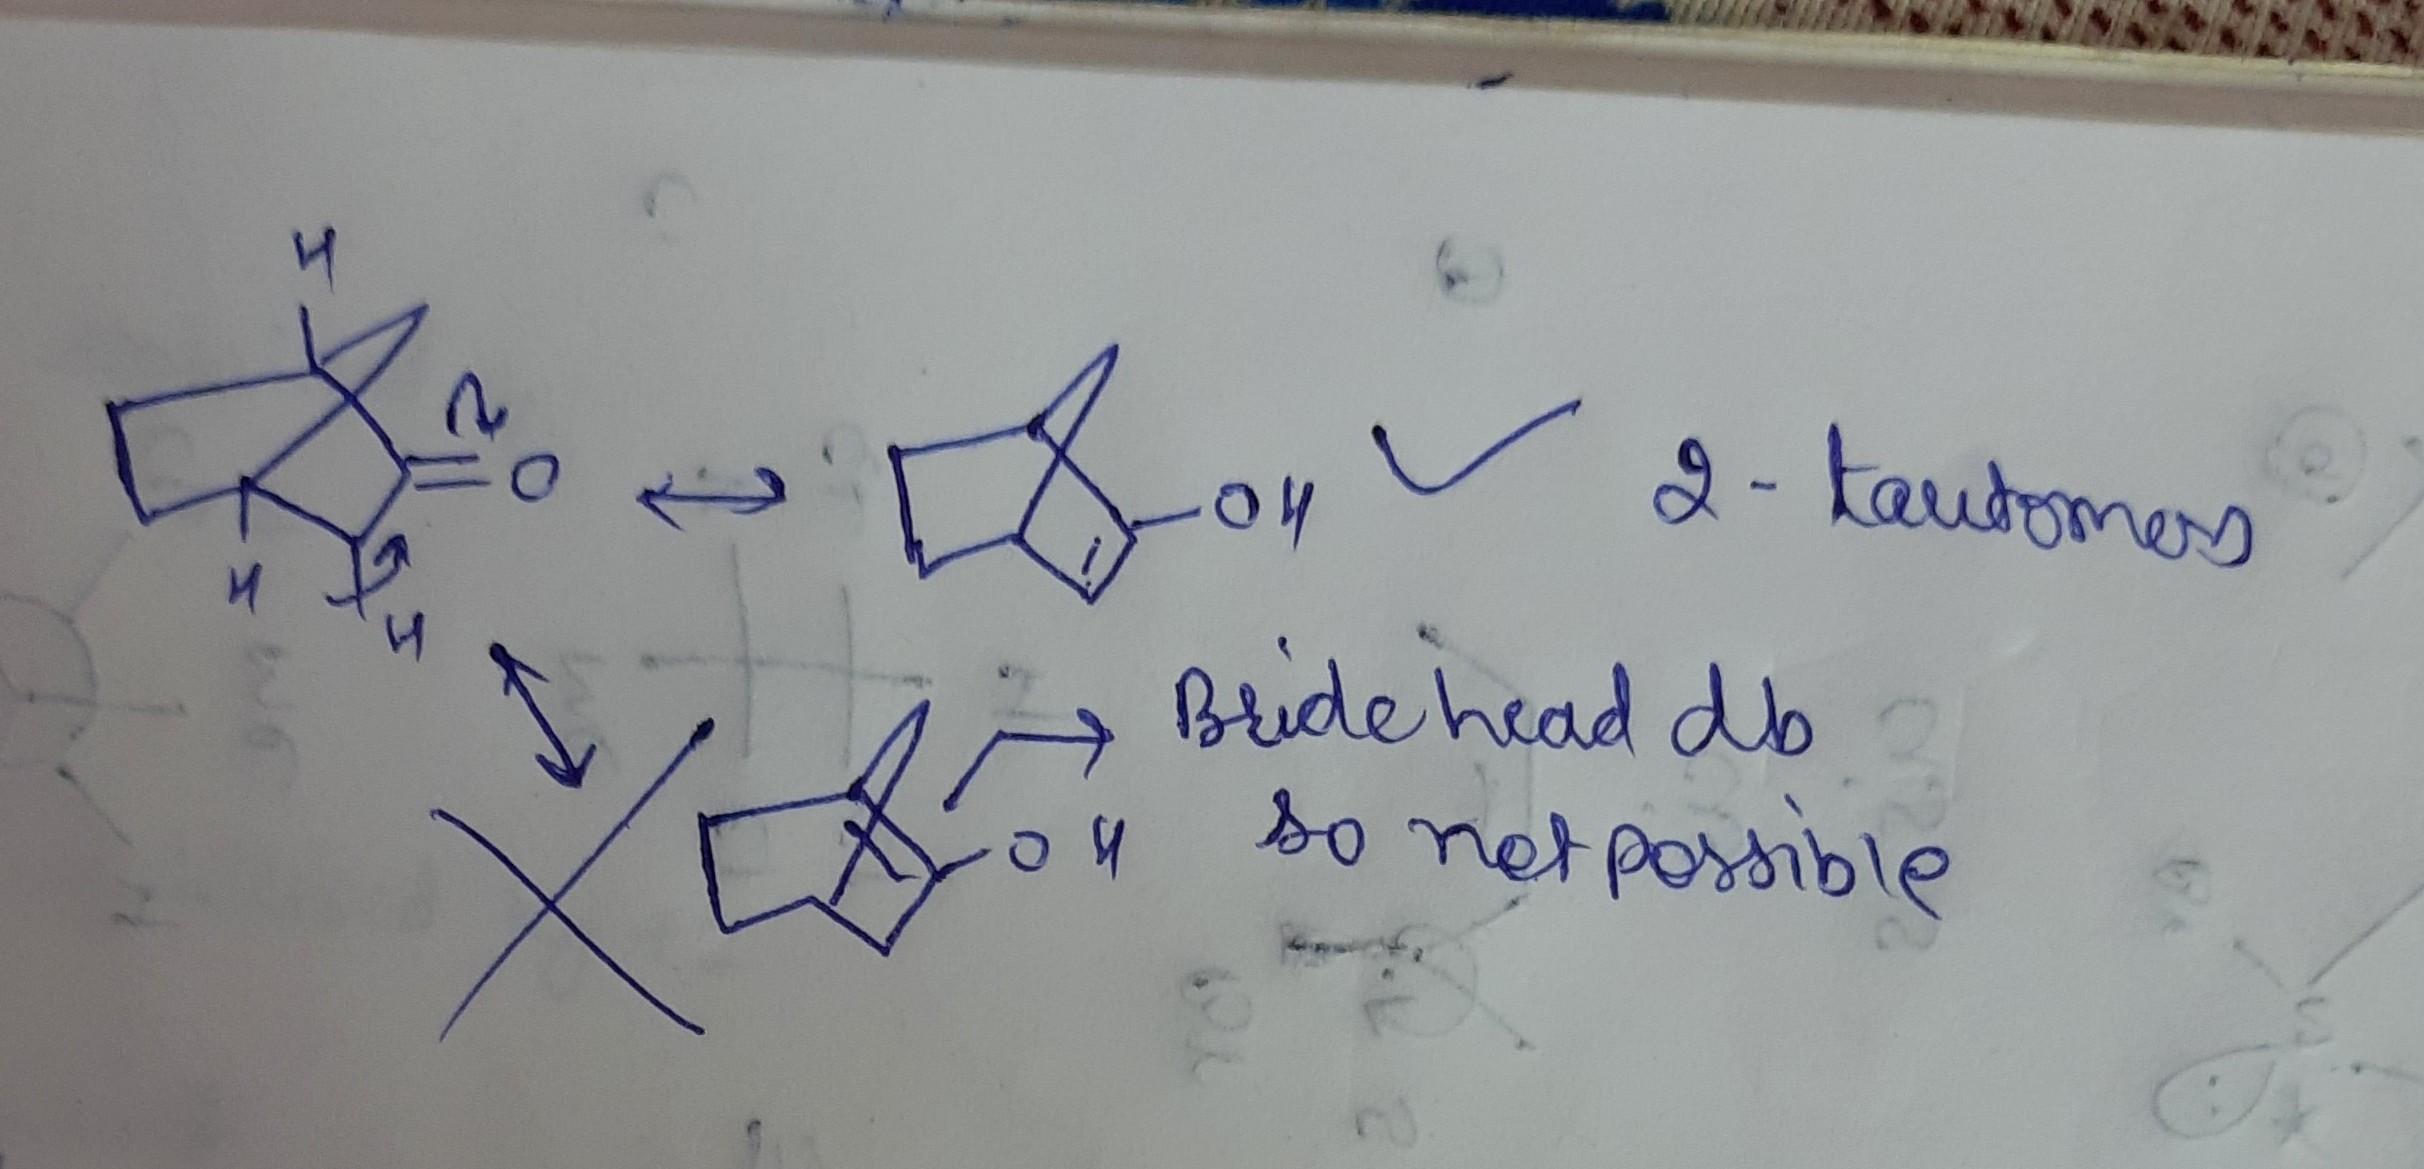 H
O
H
H
OH
2 - tautomers
OH
Bridehead db
so not possible